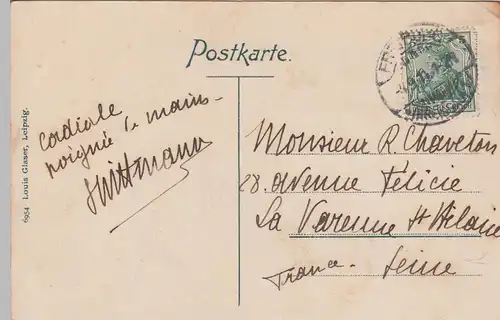 Postkarte.
cordiale
poignée de mains
Wittmann
6954 Louis Glaser, Leipzig.
Monsieur R. Chaveton
28. avenue Félicie
La Varenne St Hilaire
France. Seine